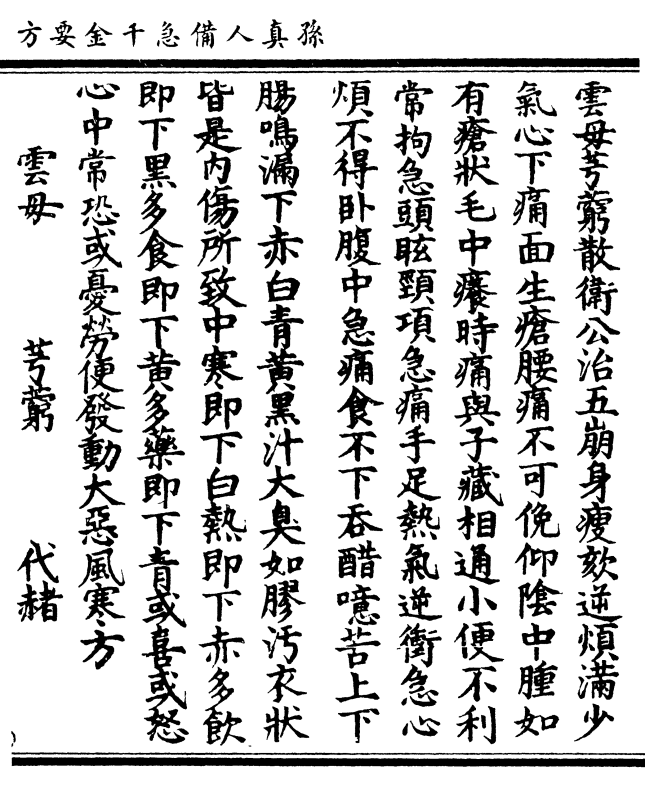 孫真人備急千金要方
雲母芎藭散衛公治五崩身瘦欬逆煩滿少
氣心下痛面生瘡腰痛不可俛仰陰中腫如
有瘡狀毛中癢時痛與子藏相通小便不利
常拘急頭眩頸項急痛手足熱氣逆衝急心
煩不得卧腹中急痛食不下吞醋噫苦上下
腸鳴漏下赤白青黃黑汁大臭如膠汚衣狀
皆是內傷所致中寒即下白熱即下赤多飲
即下黑多食即下黃多藥即下青或喜或怒
心中常恐或憂勞便發動大惡風寒方
雲母 芎藭 代赭